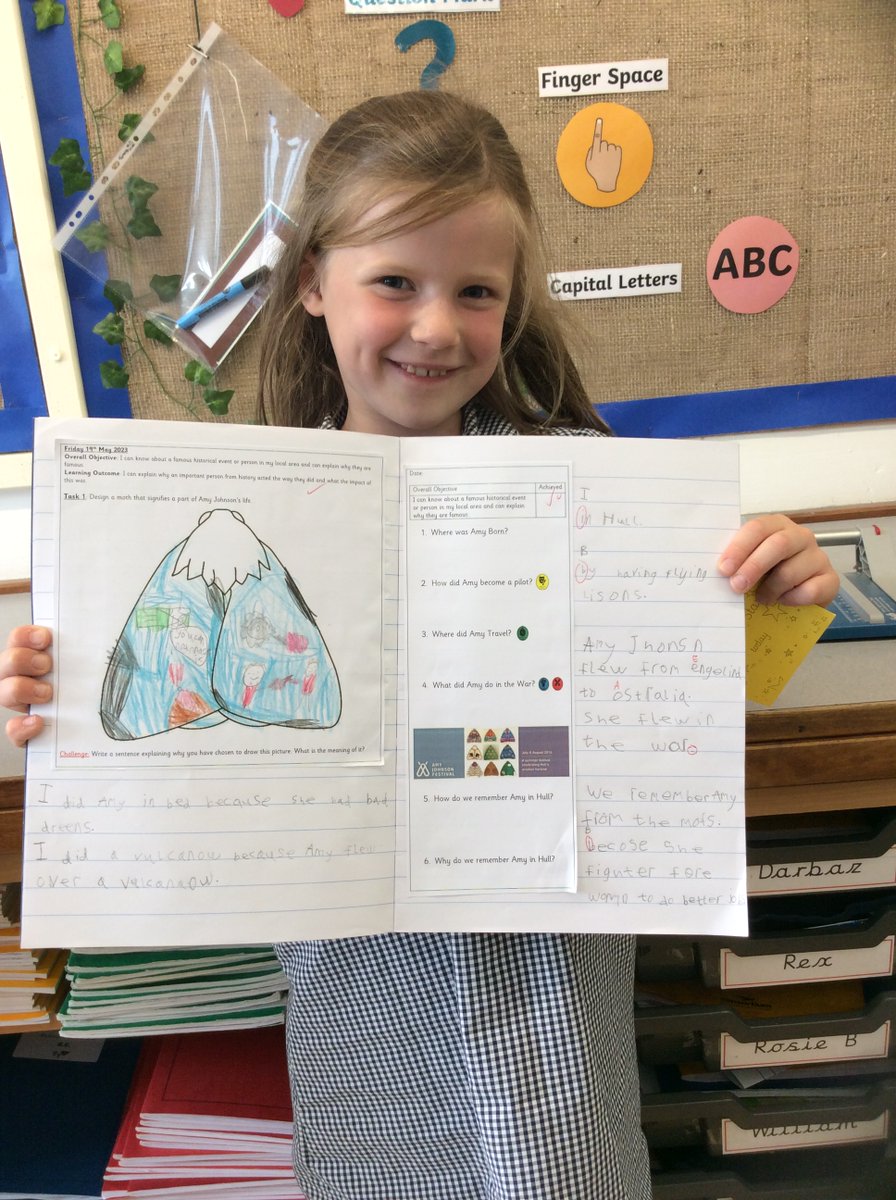 Question Mark
?
Finger Space
Capital Letters
ABC
Friday 19th May 2023
Overall Objective: I can know about a famous historical event or person in my local area and can explain why they are
famous.
Learning Outcome: I can explain why an important person from history acted the way they did and what the impact of
this was.
Task 1: Design a moth that signifies a part of Amy Johnson's life.
Challenge: Write a sentence explaining why you have chosen to draw this picture. What is the meaning of it?
I did Amy in bed because she had bad
dreens.
I did a vulcanow because Amy flew
over a vulcanaow.
Date:
Overall Objective Achieved
I can know about a famous historical event
or person in my local area and can explain
why they are famous.
1. Where was Amy Born?
2. How did Amy become a pilot?
3. Where did Amy Travel?
4. What did Amy do in the War?
AMY
JOHNSON
FESTIVAL
5. How do we remember Amy in Hull?
6. Why do we remember Amy in Hull?
I
in Hull.
B
by having flying
lisons.
Amy Jhonsn
E
flew from engelind
A
to ostralia.
she flew in
the war
We remember Amy
from the mofs.
B
becose she
fighter fore
womn to do better
today
Darbaz
Rex
Rosie B
William